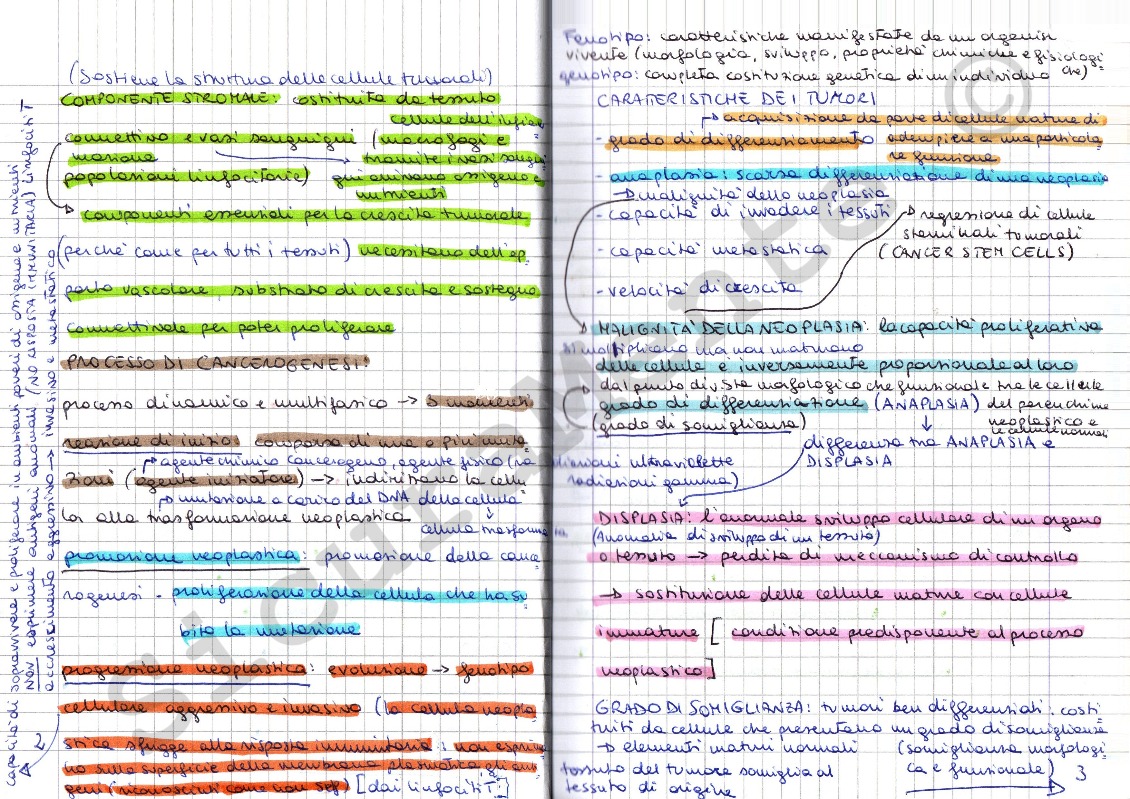 (Sostiene la struttura delle cellule tumorali)
COMPONENTE STROMALE: costituita da tessuto
cellule dell'infiam
connettivo e vasi sanguigni (macrofagi e
tramite i vasi sangui
popolazioni linfocitarie) gni arrivano ossigeno e
nutrienti
componenti essenziali per la crescita tumorale
(perchè come per tutti i tessuti) necessitano dell'ap
porto vascolare, substrato di crescita e sostegno
connettivale per poter proliferare
PROCESSO DI CANCEROGENESI:
processo dinamico e multifasico → 3 momenti
reazione di inizio: comparsa di una o più muta
→ agente chimico cancerogeno, agente fisico (ra
zioni (agente iniziatore) → indirizzano la cellu
→ mutazione a carico del DNA della cellula
la alla trasformazione neoplastica
cellula trasformata
promozione neoplastica: promozione della cance
rogenesi - proliferazione della cellula che ha su
bito la mutazione
progressione neoplastica: evoluzione → fenotipo
cellulare aggressivo e invasivo (la cellula neopla
stica sfugge alla risposta immunitaria: non esprimo
no sulla superficie della membrana plasmatica gli anti
geni riconosciuti come non self) [dai linfociti T]
capacità di sopravvivere e proliferare in ambienti poveri di ossigeno e nutrienti
NON esprimere antigeni anomali (NO RISPOSTA IMMUNITARIA) linfociti T
accrescimento aggressivo → invasivo e metastatico
Fenotipo: caratteristiche manifestate da un organismo
vivente (morfologia, sviluppo, proprietà chimiche e fisiologi
genotipo: completa costituzione genetica di un individuo che)
CARATTERISTICHE DEI TUMORI
→ acquisizione da parte di cellule mature di
- grado di differenziamento adempiere a una particola
re funzione
- anaplasia: scarsa differenziazione di una neoplasia
→ malignità della neoplasia
- capacità di invadere i tessuti → regressione di cellule
staminali tumorali
- capacità metastatica (CANCER STEM CELLS)
- velocità di crescita
MALIGNITÀ DELLA NEOPLASIA: la capacità proliferativa
si moltiplicano ma non maturano
delle cellule è inversamente proporzionale al loro
→ dal punto di vista morfologico che funzionale tra le cellule
grado di differenziazione (ANAPLASIA) del parenchima
(grado di somiglianza) neoplastico e
le cellule normali
differenza tra ANAPLASIA e
diazioni ultraviolette DISPLASIA
radiazioni gamma)
DISPLASIA: l'anormale sviluppo cellulare di un organo
(Anomalia di sviluppo di un tessuto)
o tessuto → perdita di meccanismo di controllo
→ sostituzione delle cellule mature con cellule
immature [condizione predisponente al processo
neoplastico]
GRADO DI SOMIGLIANZA: tumori ben differenziati: costi
tuiti da cellule che presentano un grado di somiglianza
→ elementi maturi normali (somiglianza morfologi
tessuto del tumore somiglia al ca e funzionale) 3
tessuto di origine
sicuramente ©